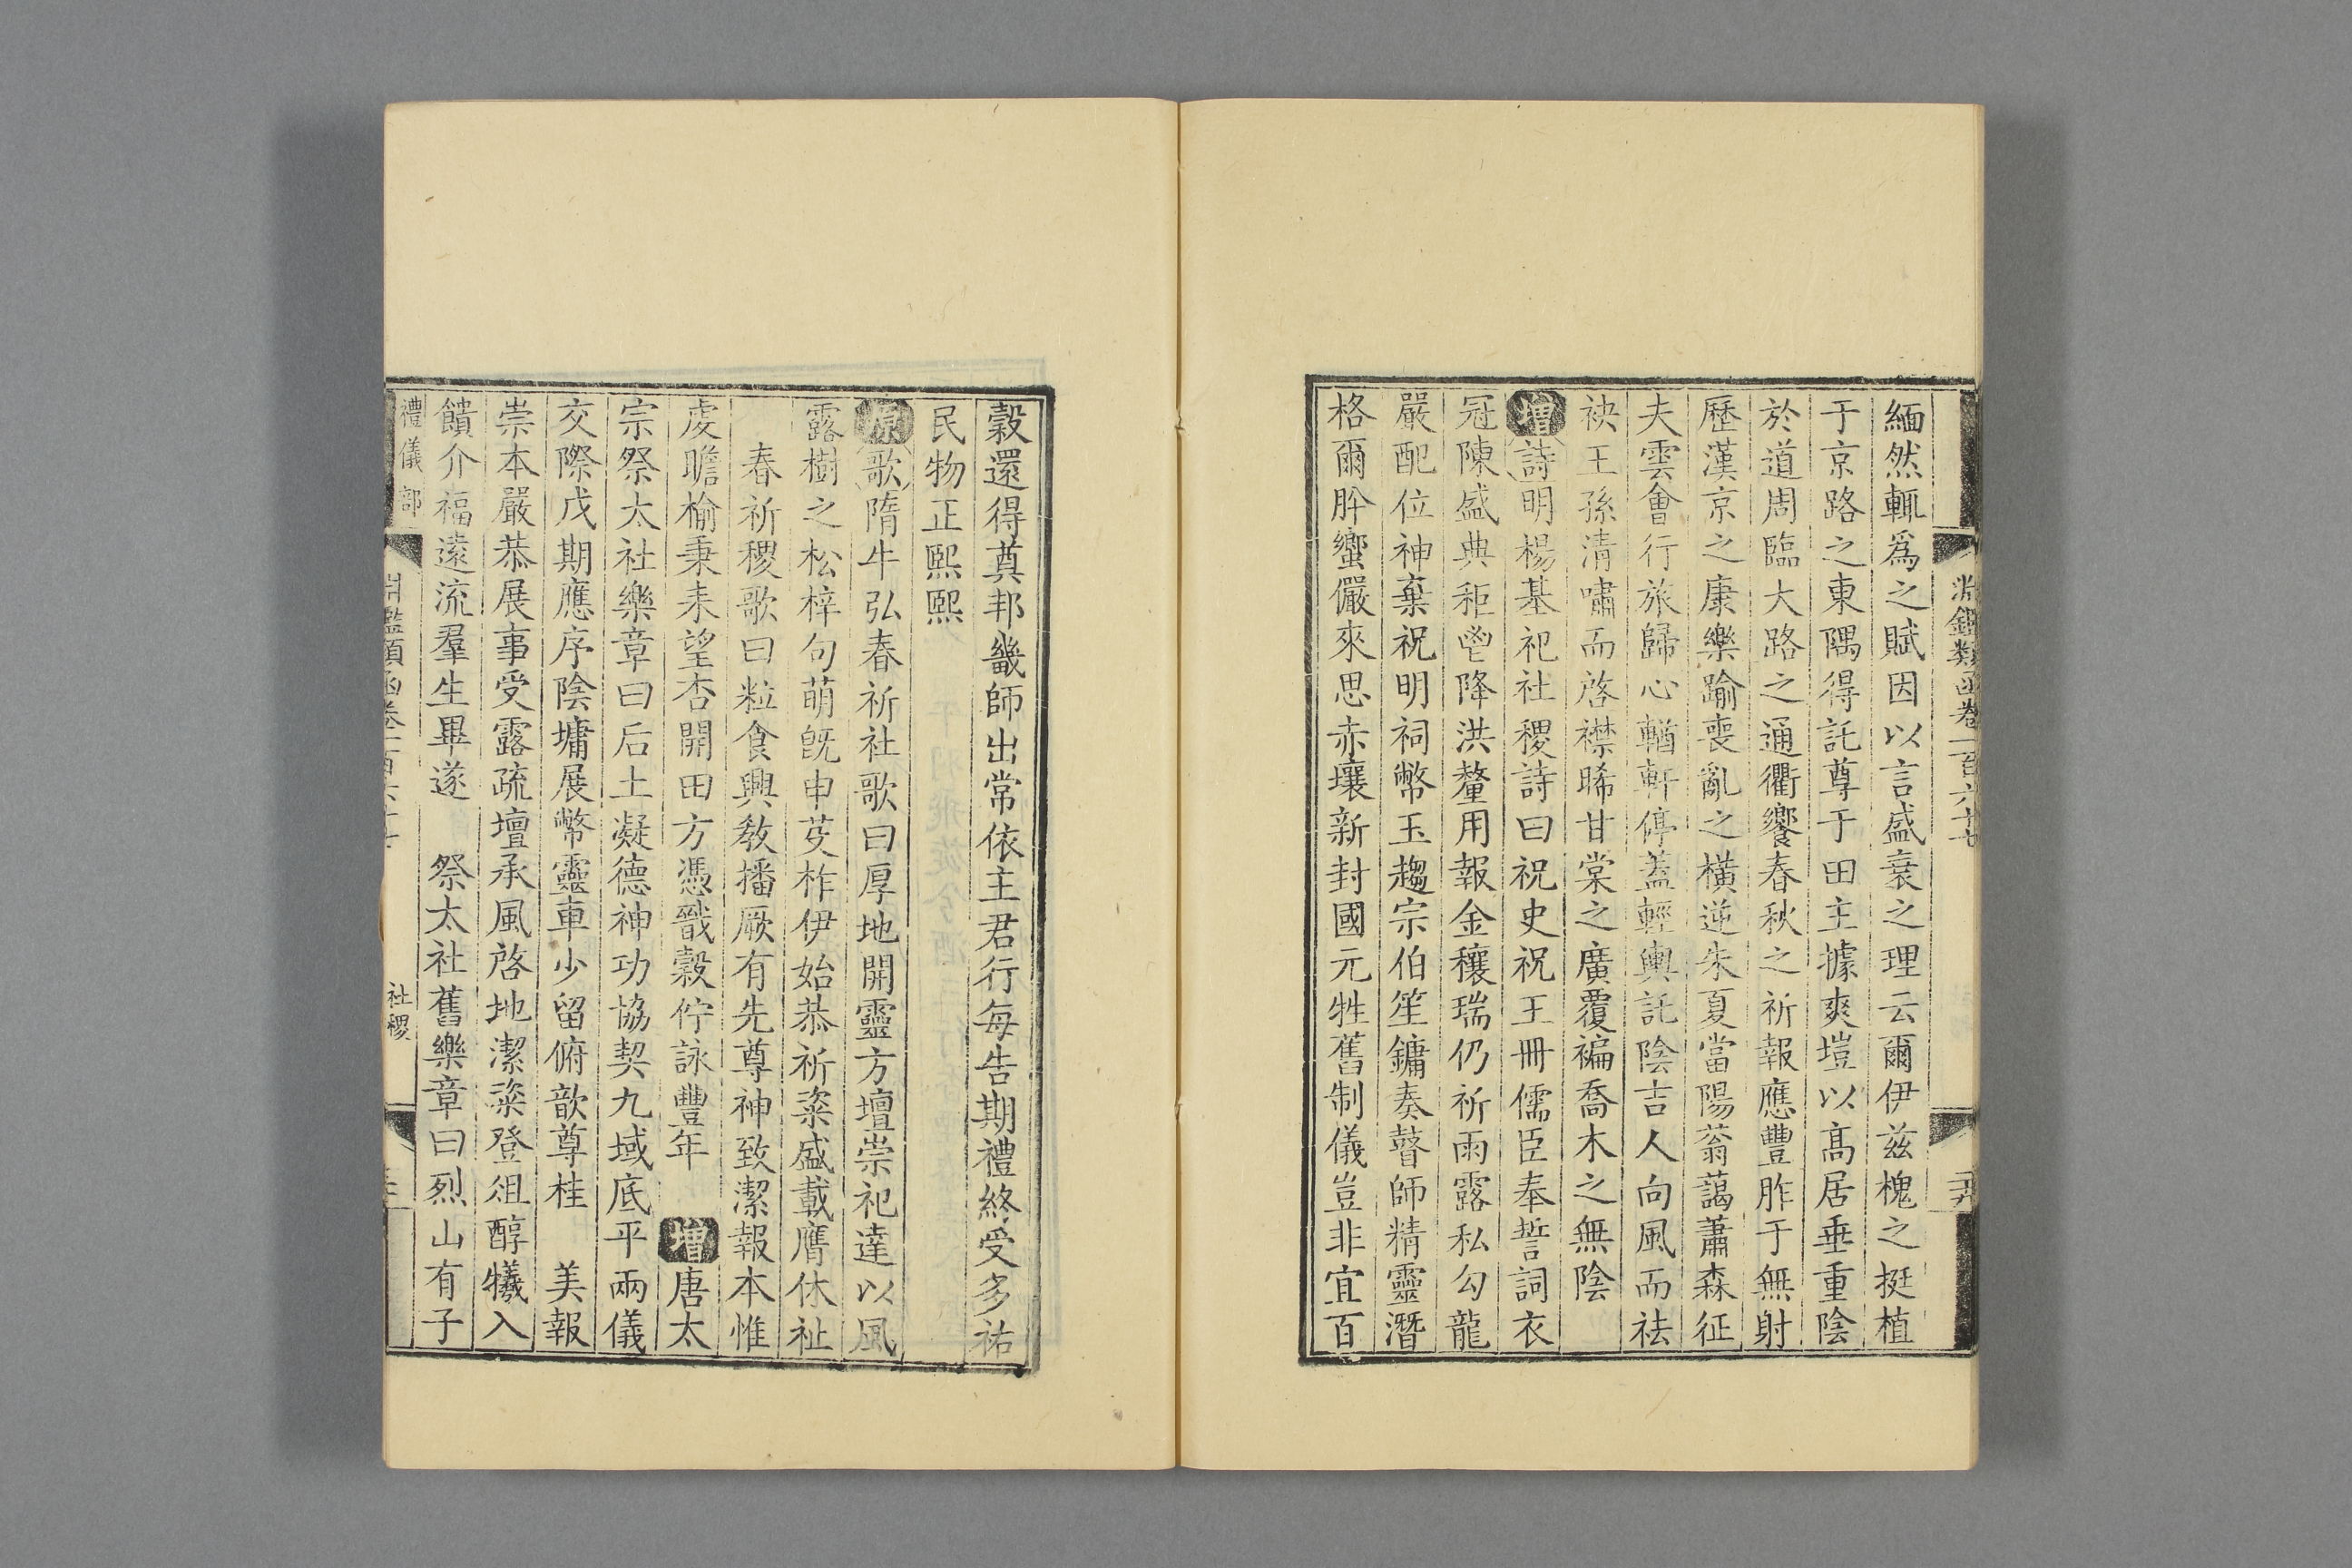 淵鑑類函卷一百六十
緬然輒爲之賦因以言盛衰之理云爾伊兹槐之挺植
于京路之東隅得託尊于田主據爽塏以高居垂重陰
於道周臨大路之通衢饗春秋之祈報應豐胙于無射
歷漢京之康樂踰喪亂之橫逆朱夏當陽蓊藹蕭森征
夫雲會行旅歸心輶軒停蓋輕輿託陰吉人向風而祛
袂王孫清嘯而啓襟晞甘棠之廣覆褊喬木之無陰
增詩明楊基祀社稷詩曰祝史祝王冊儒臣奉誓詞衣
冠陳盛典秬鬯降洪釐用報金穰瑞仍祈雨露私勾龍
嚴配位神棄祝明祠幣玉趨宗伯笙鏞奏瞽師精靈潛
格爾肸蠁儼來思赤壤新封國元牲舊制儀豈非宜百
穀還得奠邦畿師出常依主君行每告期禮終受多祐
民物正熙熙
原歌隋牛弘春祈社歌曰厚地開靈方壇崇祀達以風
露樹之松梓句萌旣申芟柞伊始恭祈粢盛載膺休祉
春祈稷歌曰粒食興敎播厥有先尊神致潔報本惟
虔瞻榆秉耒望杏開田方憑戩穀佇詠豐年 增唐太
宗祭太社樂章曰后土凝德神功協契九域底平兩儀
交際戊期應序陰墉展幣靈車少留俯歆尊桂 美報
崇本嚴恭展事受露疏壇承風啓地潔粢登俎醇犧入
饋介福遠流羣生畢遂 祭太社舊樂章曰烈山有子
禮儀部
社稷